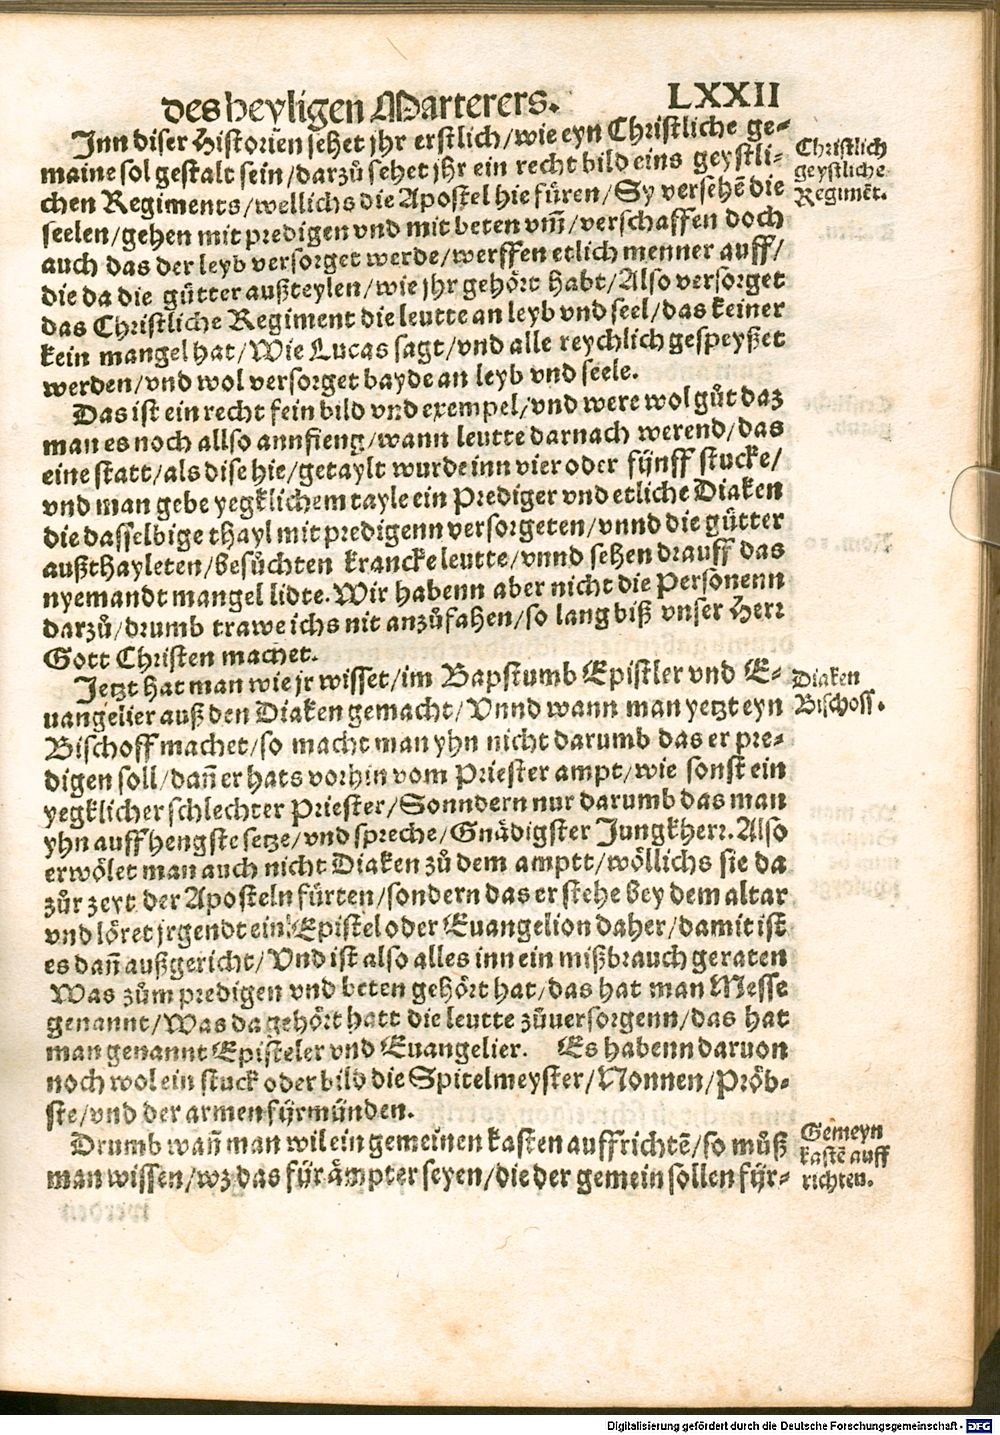 des heyligen Marterers. LXXII
Jnn diser Historien sehet jhr erstlich/wie eyn Christliche ge-
maine sol gestalt sein/darzů sehet jhr ein recht bild eins geystli-
chen Regiments/wellichs die Apostel hie füren/Sy versehē die
seelen/gehen mit predigen vnd mit beten vm̄/verschaffen doch
auch das der leyb versorget werde/werffen etlich menner auff/
die da die gütter außteylen/wie jhr gehört habt/Also versorget
das Christliche Regiment die leutte an leyb vnd seel/das keiner
kein mangel hat/Wie Lucas sagt/vnd alle reychlich gespeyßet
werden/vnd wol versorget bayde an leyb vnd seele.
Das ist ein recht fein bild vnd exempel/vnd were wol gůt daz
man es noch allso annfieng/wann leutte darnach werend/das
eine statt/als dise hie/getaylt wurde inn vier oder fünff stucke/
vnd man gebe yegklichem tayle ein Prediger vnd etliche Diaken
die dasselbige thayl mit predigenn versorgeten/vnnd die gütter
außthayleten/besůchten krancke leutte/vnnd sehen drauff das
nyemandt mangel lidte. Wir habenn aber nicht die Personenn
darzů/drumb trawe ichs nit anzůfahen/so lang biß vnser Herr
Gott Christen machet.
Jetzt hat man wie jr wisset/im Bapstumb Epistler vnd E-
uangelier auß den Diaken gemacht/Vnnd wann man yetzt eyn
Bischoff machet/so macht man yhn nicht darumb das er pre-
digen soll/dañ er hats vorhin vom Priester ampt/wie sonst ein
yegklicher schlechter Priester/Sonndern nur darumb das man
yhn auff hengste setze/vnd spreche/Gnädigster Jungkherr. Also
erwölet man auch nicht Diaken zů dem amptt/wöllichs sie da
zůr zeyt der Aposteln fürten/sondern das er stehe bey dem altar
vnd löret jrgendt ein Epistel oder Euangelion daher/damit ist
es dañ außgericht/Vnd ist also alles inn ein mißbrauch geraten
Was zům predigen vnd beten gehört hat/das hat man Messe
genannt/Was da gehört hatt die leutte zůuersorgenn/das hat
man genannt Episteler vnd Euangelier. Es habenn daruon
noch wol ein stuck oder bild die Spitelmeyster/Nonnen/Pröb-
ste/vnd der armen fürmünden.
Drumb wañ man wil ein gemeinen kasten auffrichtē/so můß
man wissen/wz das für ämpter seyen/die der gemein sollen für-
Christlich
geystliche
Regimēt.
Diaken
Bischoff.
Gemeyn
kastē auff
richten.
Digitalisierung gefördert durch die Deutsche Forschungsgemeinschaft - DFG